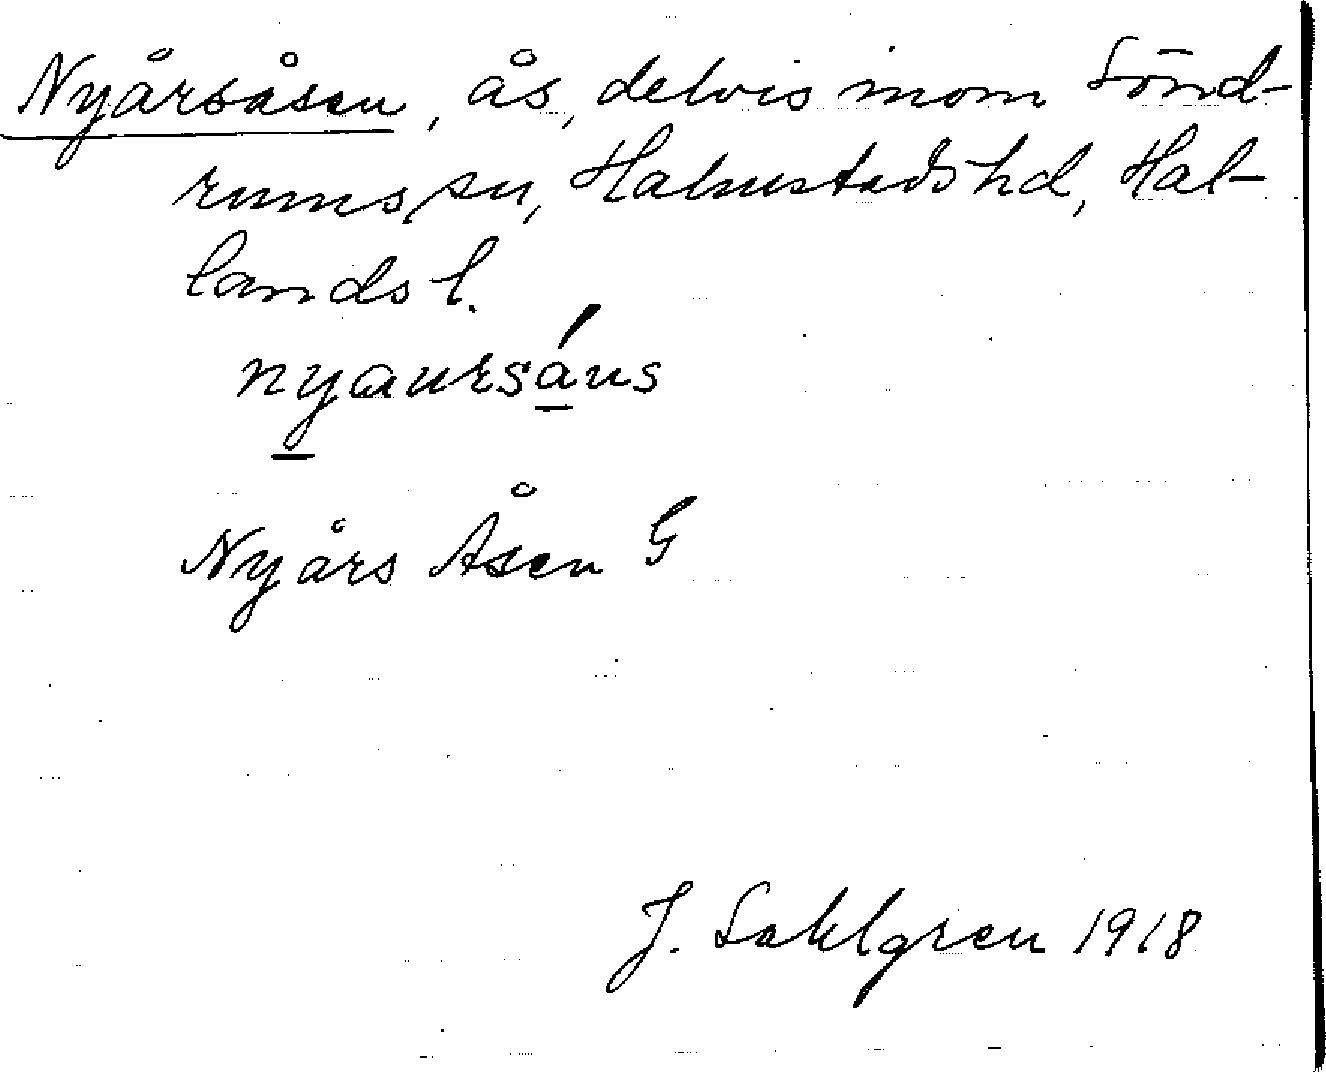 Nyårsåsen, ås, delvis inom Sönd-
rums sn, Halmstads hd, Hal-
lands l.
nyaursáns
Nyårs Åsen G
J. Sahlgren 1918